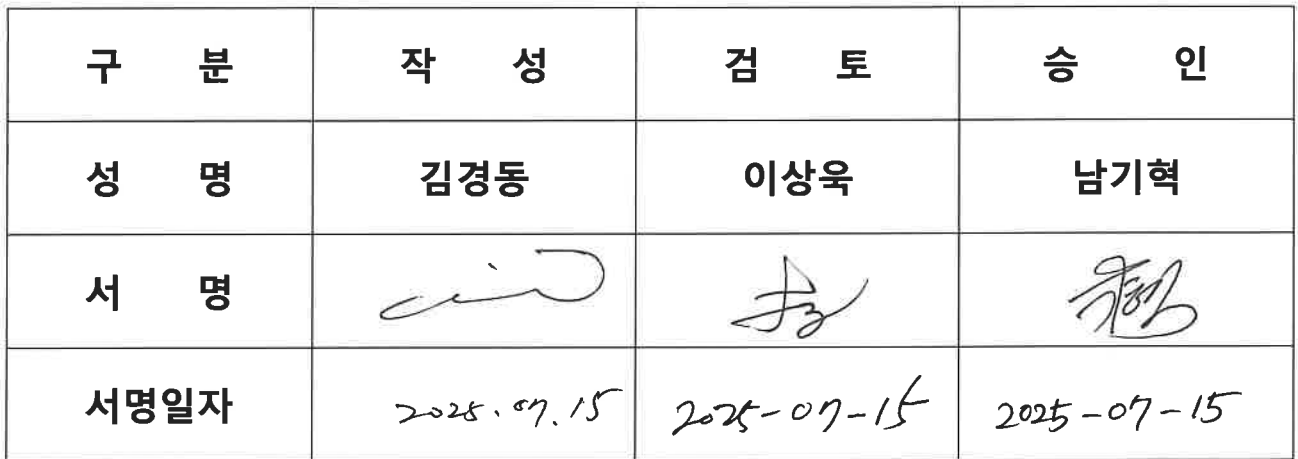 구 분 작 성 검 토 승 인
성 명 김경동 이상욱 남기혁
서 명
서명일자 2025.07.15 2025-07-15 2025-07-15